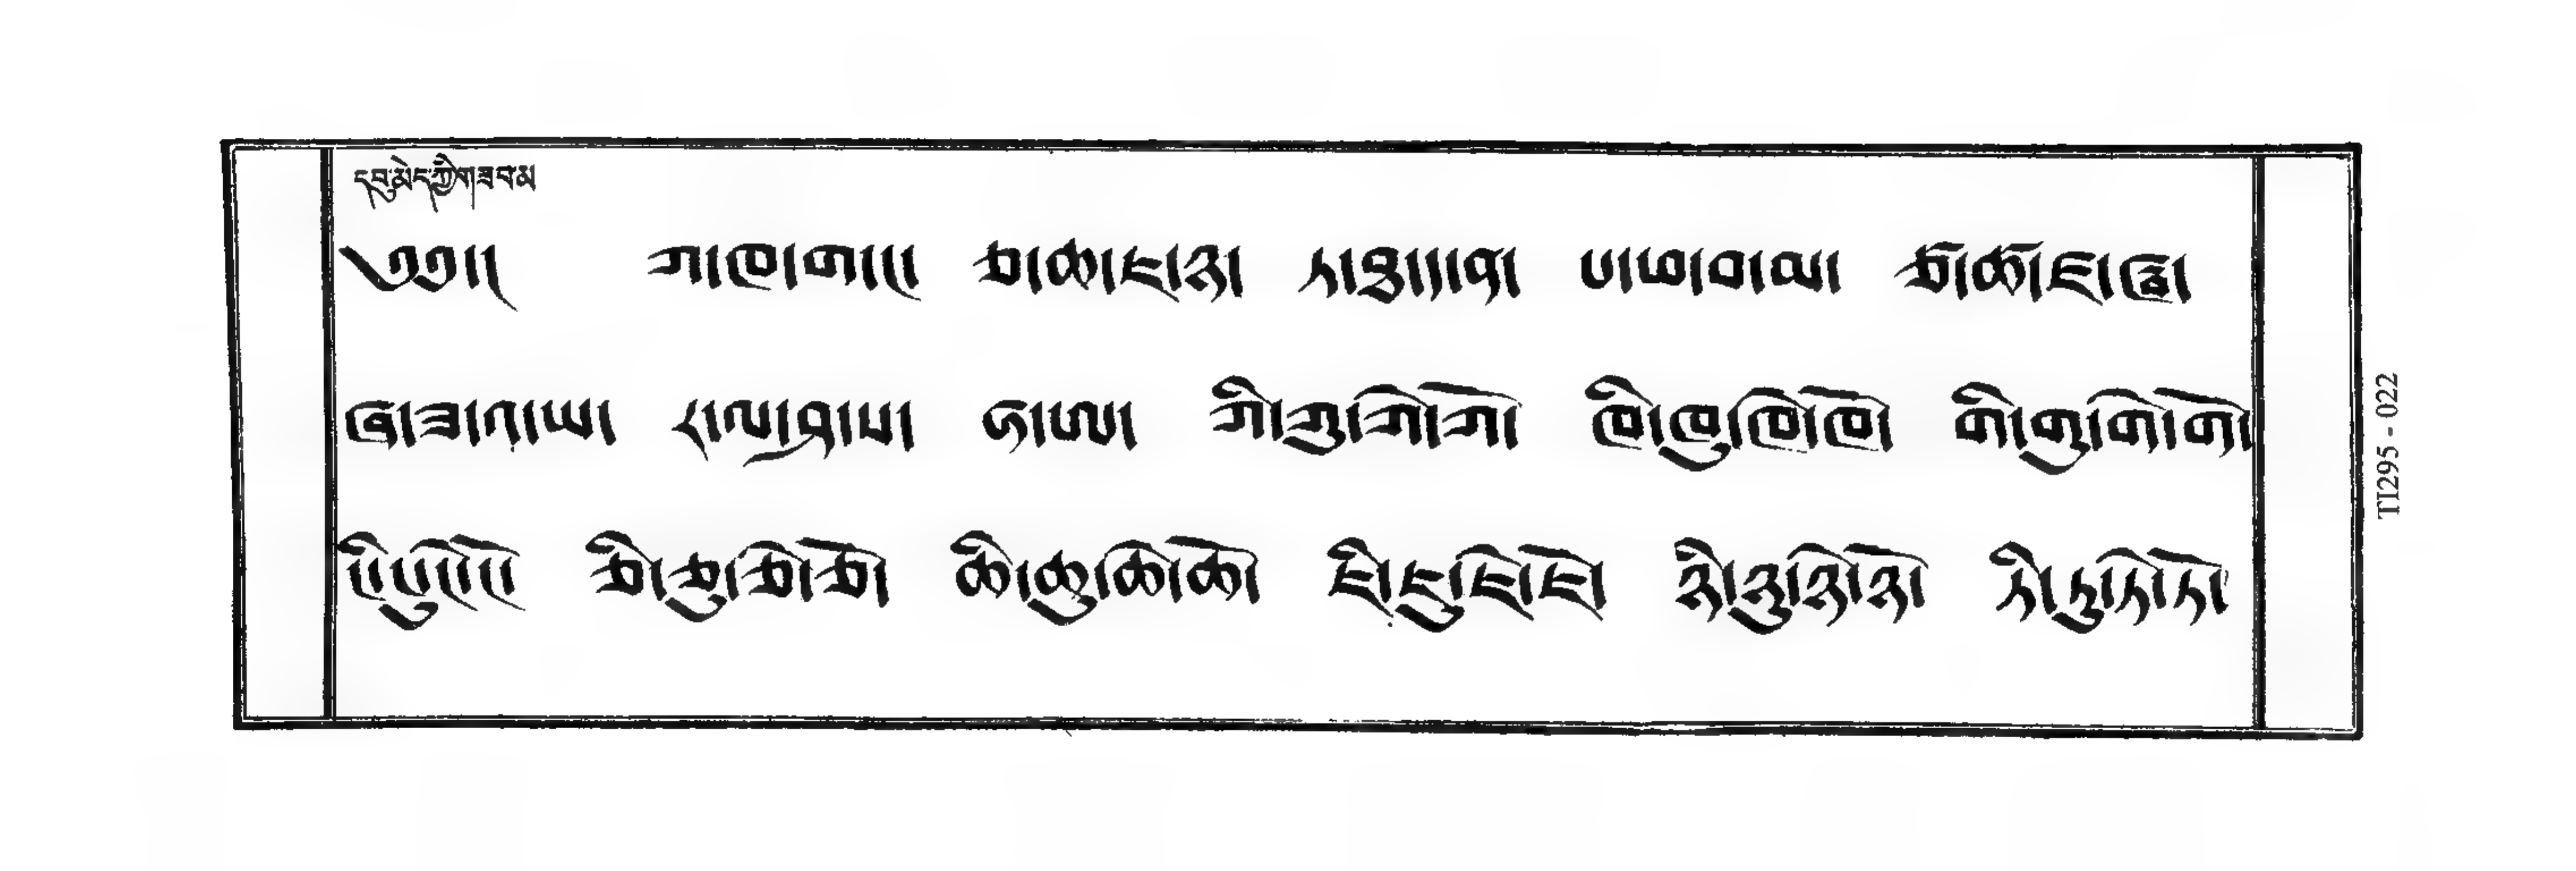 དབུ་མེད་ཀྱི་གཟབ་མ
༄༅།། ཀ་ཁ་ག་ང་ ཅ་ཆ་ཇ་ཉ་ ཏ་ཐ་ད་ན་ པ་ཕ་བ་མ་ ཙ་ཚ་ཛ་ཝ་
ཞ་ཟ་འ་ཡ་ ར་ལ་ཤ་ས་ ཧ་ཨ་ ཀི་ཀུ་ཀེ་ཀོ་ ཁི་ཁུ་ཁེ་ཁོ་ གི་གུ་གེ་གོ་
ངི་ངུ་ངེ་ངོ་ ཅི་ཅུ་ཅེ་ཅོ་ ཆི་ཆུ་ཆེ་ཆོ་ ཇི་ཇུ་ཇེ་ཇོ་ ཉི་ཉུ་ཉེ་ཉོ་ ཏི་ཏུ་ཏེ་ཏོ་
TI295 - 022